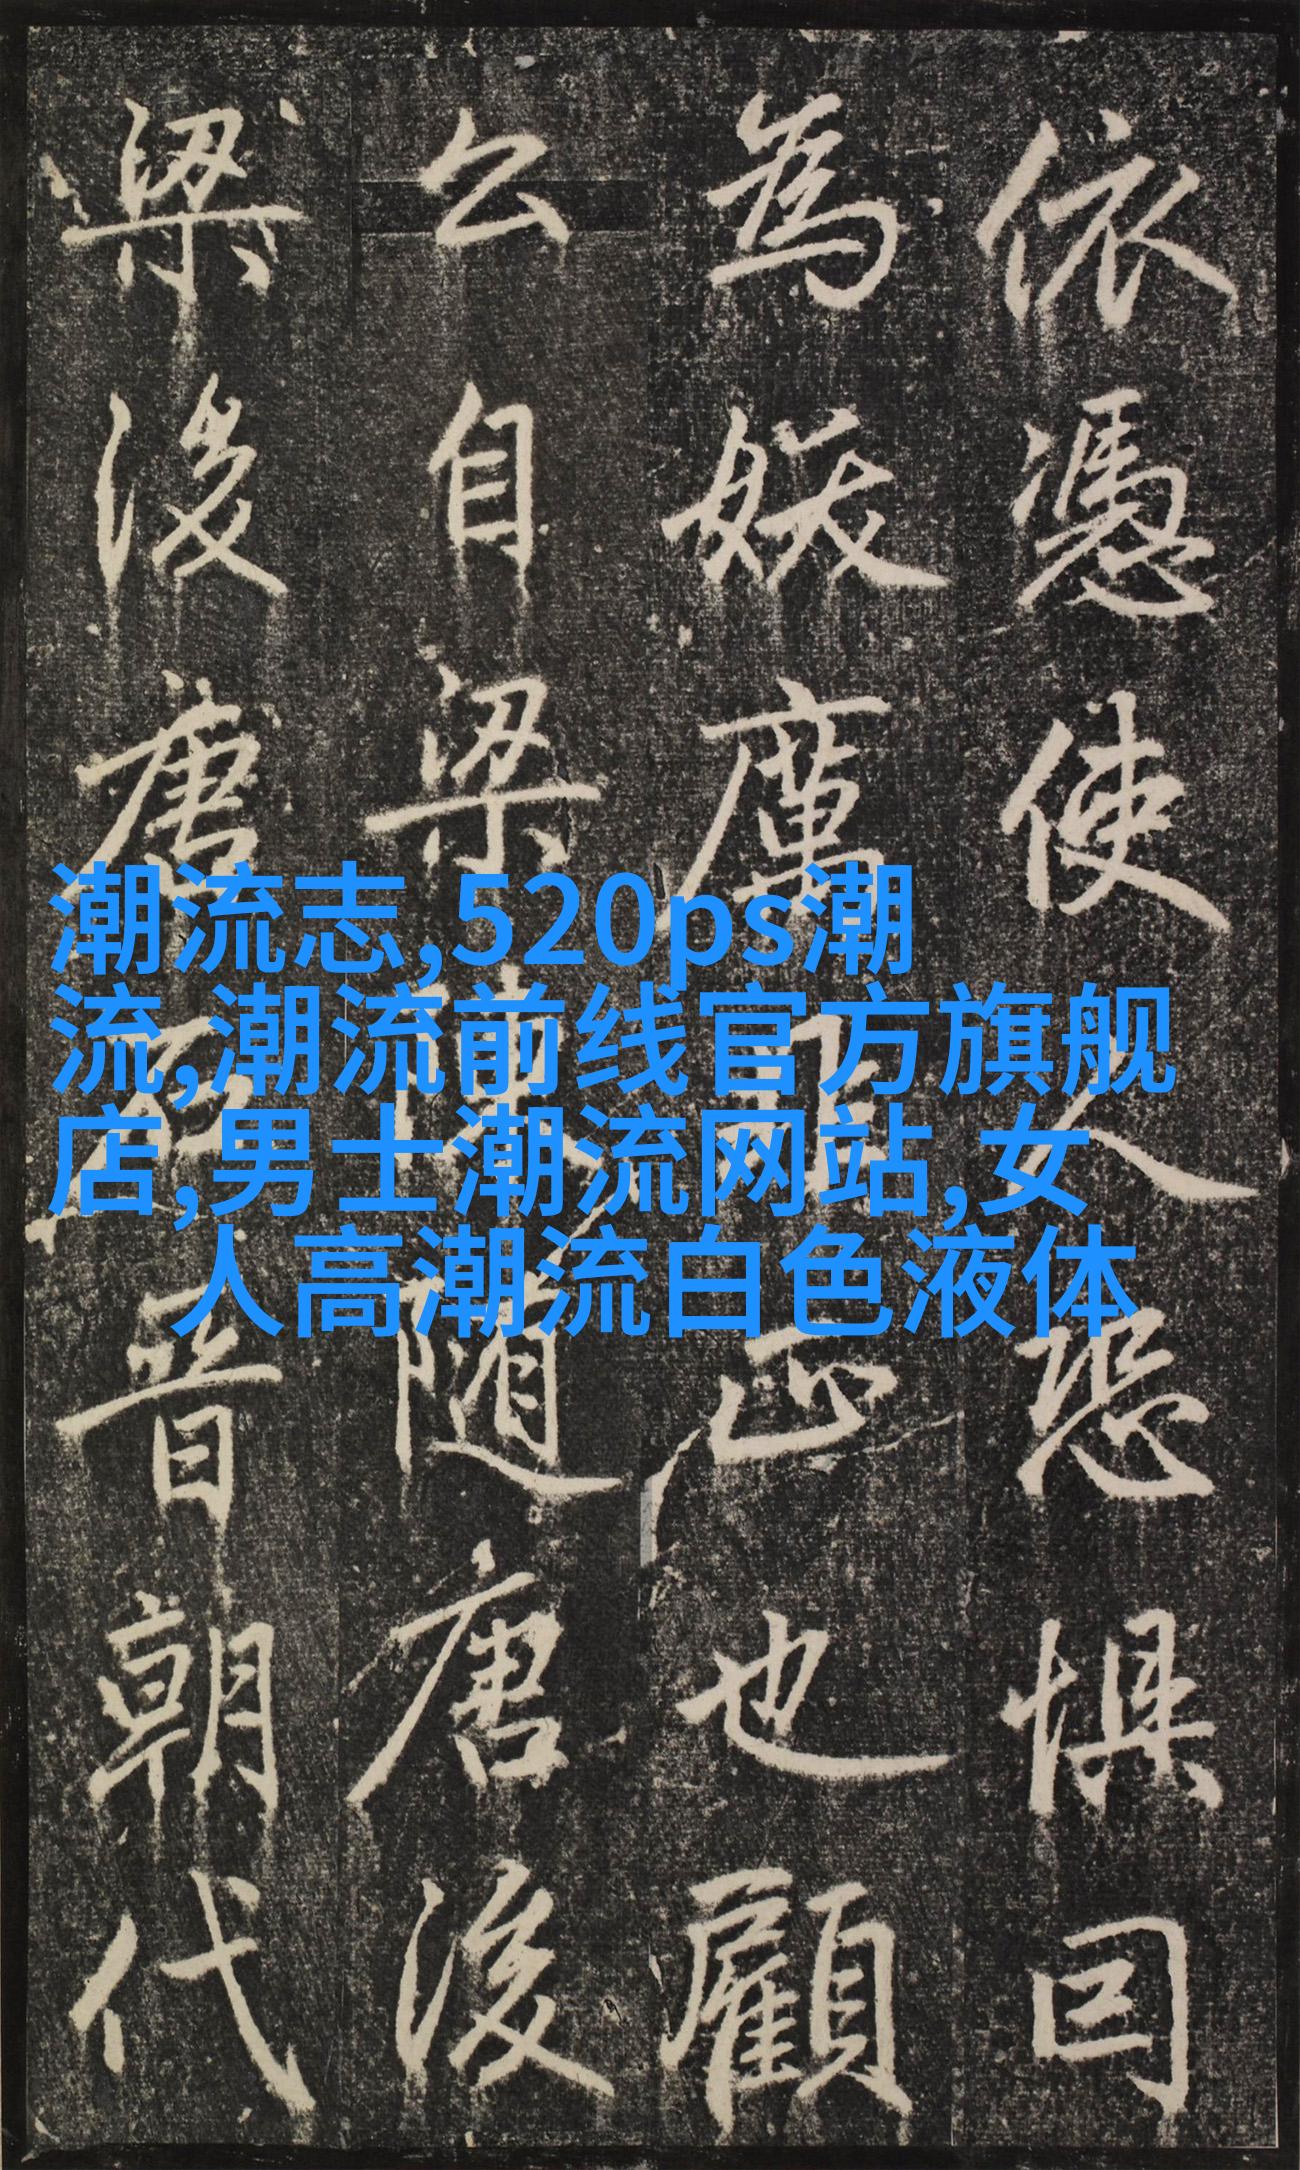 依憑使人恐懼囙
為妖厲正也顧
公自梁陳隨唐後
梁後唐石晉朝代
潮流志,520ps潮
流,潮流前线官方旗舰
店,男士潮流网站,女
人高潮流白色液体